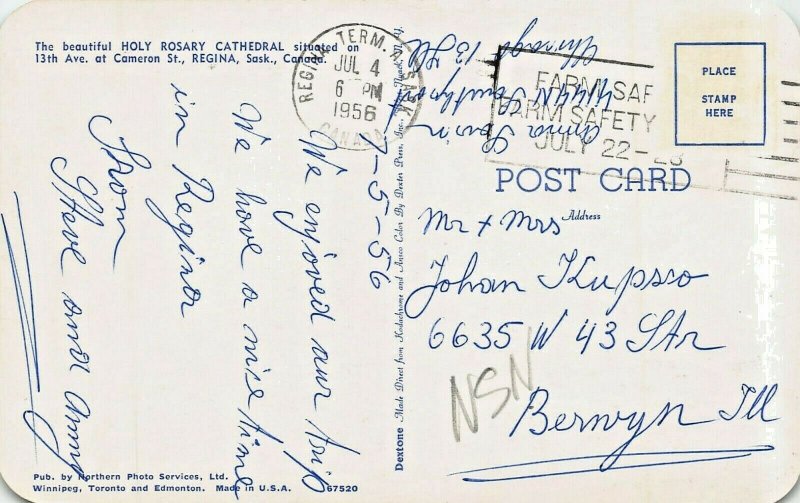 The beautiful HOLY ROSARY CATHEDRAL situated on
13th Ave. at Cameron St., REGINA, Sask., Canada.
REGINA TERM. A SASK
JUL 4
6 PM
1956
CANADA
FARM SAF
FARM SAFETY
JULY 22 -
PLACE
STAMP
HERE
Chicago 13 Ill
Anna
POST CARD
Address
7-5-56
We enjoyed our trip
We have a nice time
in Regina
From
Steve and Anny
Mr + Mrs
Johan Kupsso
6635 W 43 Str
Berwyn Ill
NSN
Dextone Made Direct from Kodachrome and Ansco Color By Dexter Press, Inc.
Pub. by Northern Photo Services, Ltd.
Winnipeg, Toronto and Edmonton. Made in U.S.A. 67520